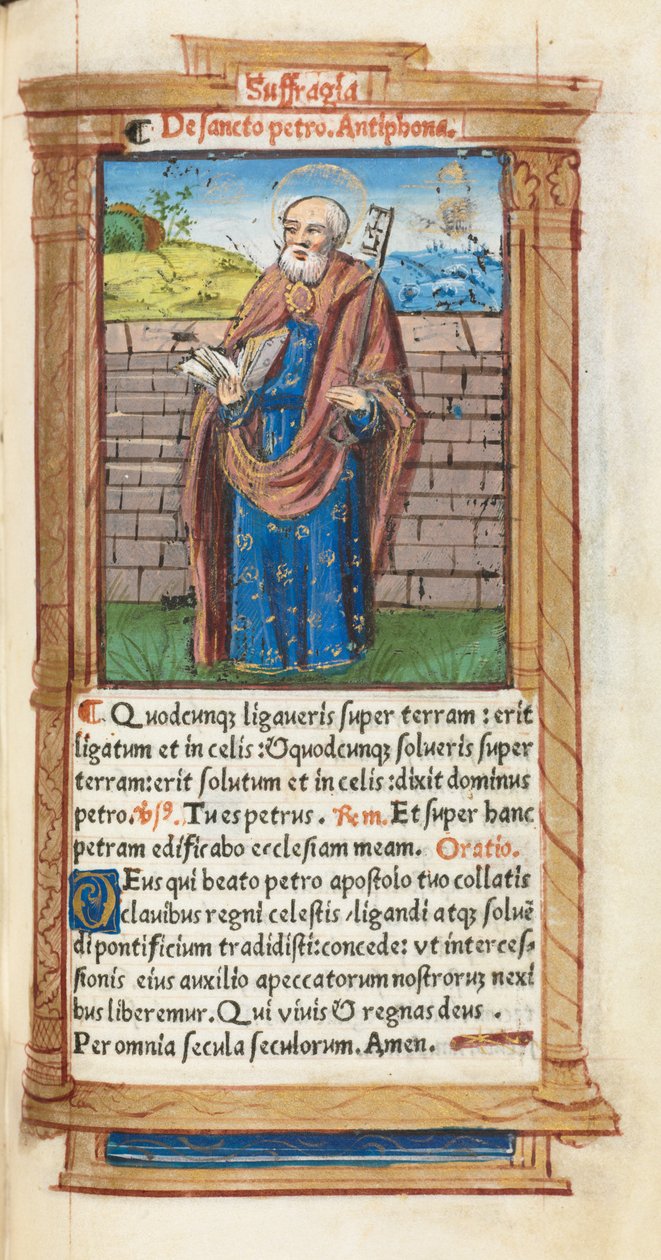 Suffragia
¶ De sancto petro. Antiphona.
¶ Quodcunqꝫ ligaueris ſuper terram : erit
ligatum et in celis : & quodcunqꝫ ſolueris ſuper
terram: erit ſolutum et in celis : dixit dominus
petro. ℣ſꝰ. Tu es petrus . Reſp̄. Et ſuper hanc
petram edificabo eccleſiam meam. Oratio.
DEus qui beato petro apoſtolo tuo collatis
clauibus regni celeſtis / ligandi atqꝫ soluē
di pontificium tradidiſti: concede: vt interceſ⸗
ſionis eius auxilio a peccatorum noſtroruꝫ nexi
bus liberemur. Qui viuis & regnas deus .
Per omnia ſecula ſeculorum. Amen.